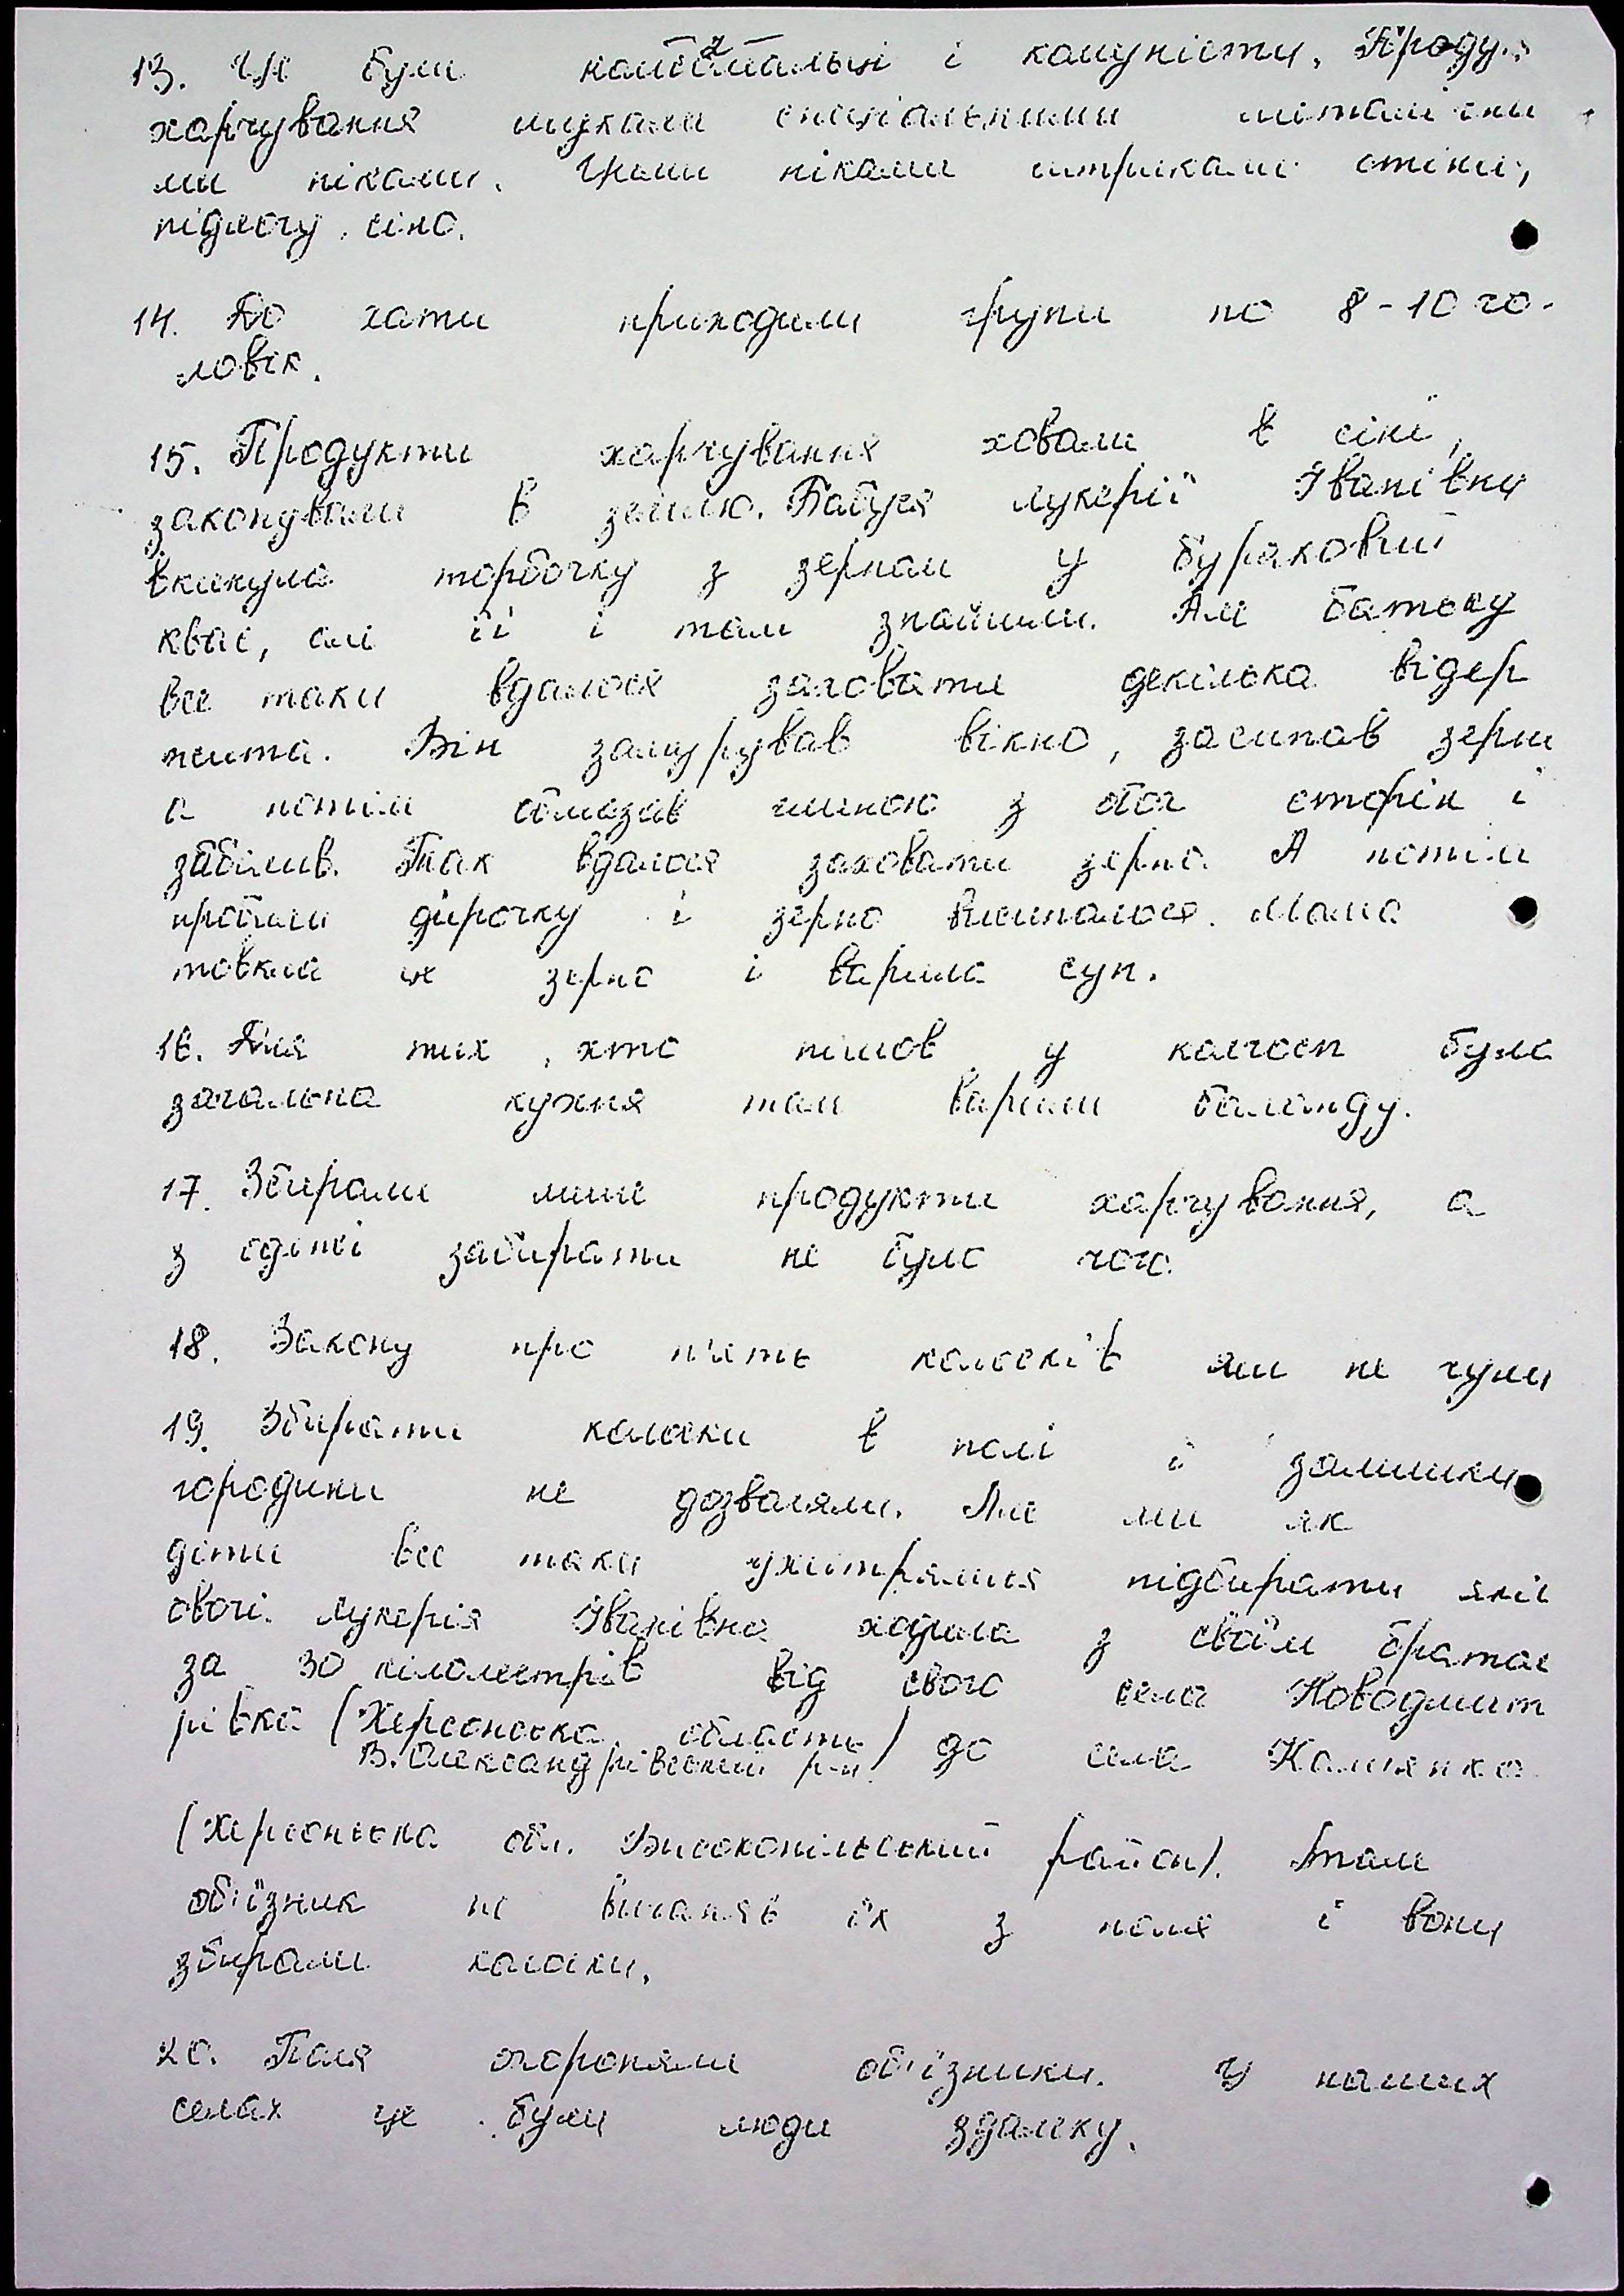 13. Це були і комуністи. Проду
харчування шукали спеціальними металічни
ми піками. Цими піками штрикали стіни,
підлогу, сіно.
14. До хати приходили групи по 8-10 чо-
ловік.
15. Продукти харчування ховали в сіні,
закопували в землю. Бабуся Лукерії Іванівни
вкинула торбочку з зерном у буряковий
квас, але її і там знайшли. Але батьку
все таки вдалося заховати декілька відер
жита. Він замурував вікно, засипав зерни
а потім обмазав глиною з обох сторін і
забілив. Так вдалося заховати зерно. А потім
пробили дірочку і зерно висипалося. Мама
товкла це зерно і варила суп.
16. Для тих, хто пішов у колгосп була
загальна кухня там варили баланду.
17. Збирали лише продукти харчування, а
з одежі забирати не було чого.
18. Закону про п'ять колосків ми не чули
19. Збирати колоски в полі і залишки
городини не дозволяли. Але ми як
діти все таки ухитрялися підбирати якісь
овочі. Лукерія Іванівна ходила з своїм братом
за 30 кілометрів від свого села Новодмит
рівка (Херсонська область) до села Кам'янка
В. Олександрівський р-н
(Херсонська обл. Високопільський район). Там
об'їзник не виганяв їх з поля і вони
збирали колоски.
20. Поля охороняли об'їзники. У наших
селах це були люди здалеку.